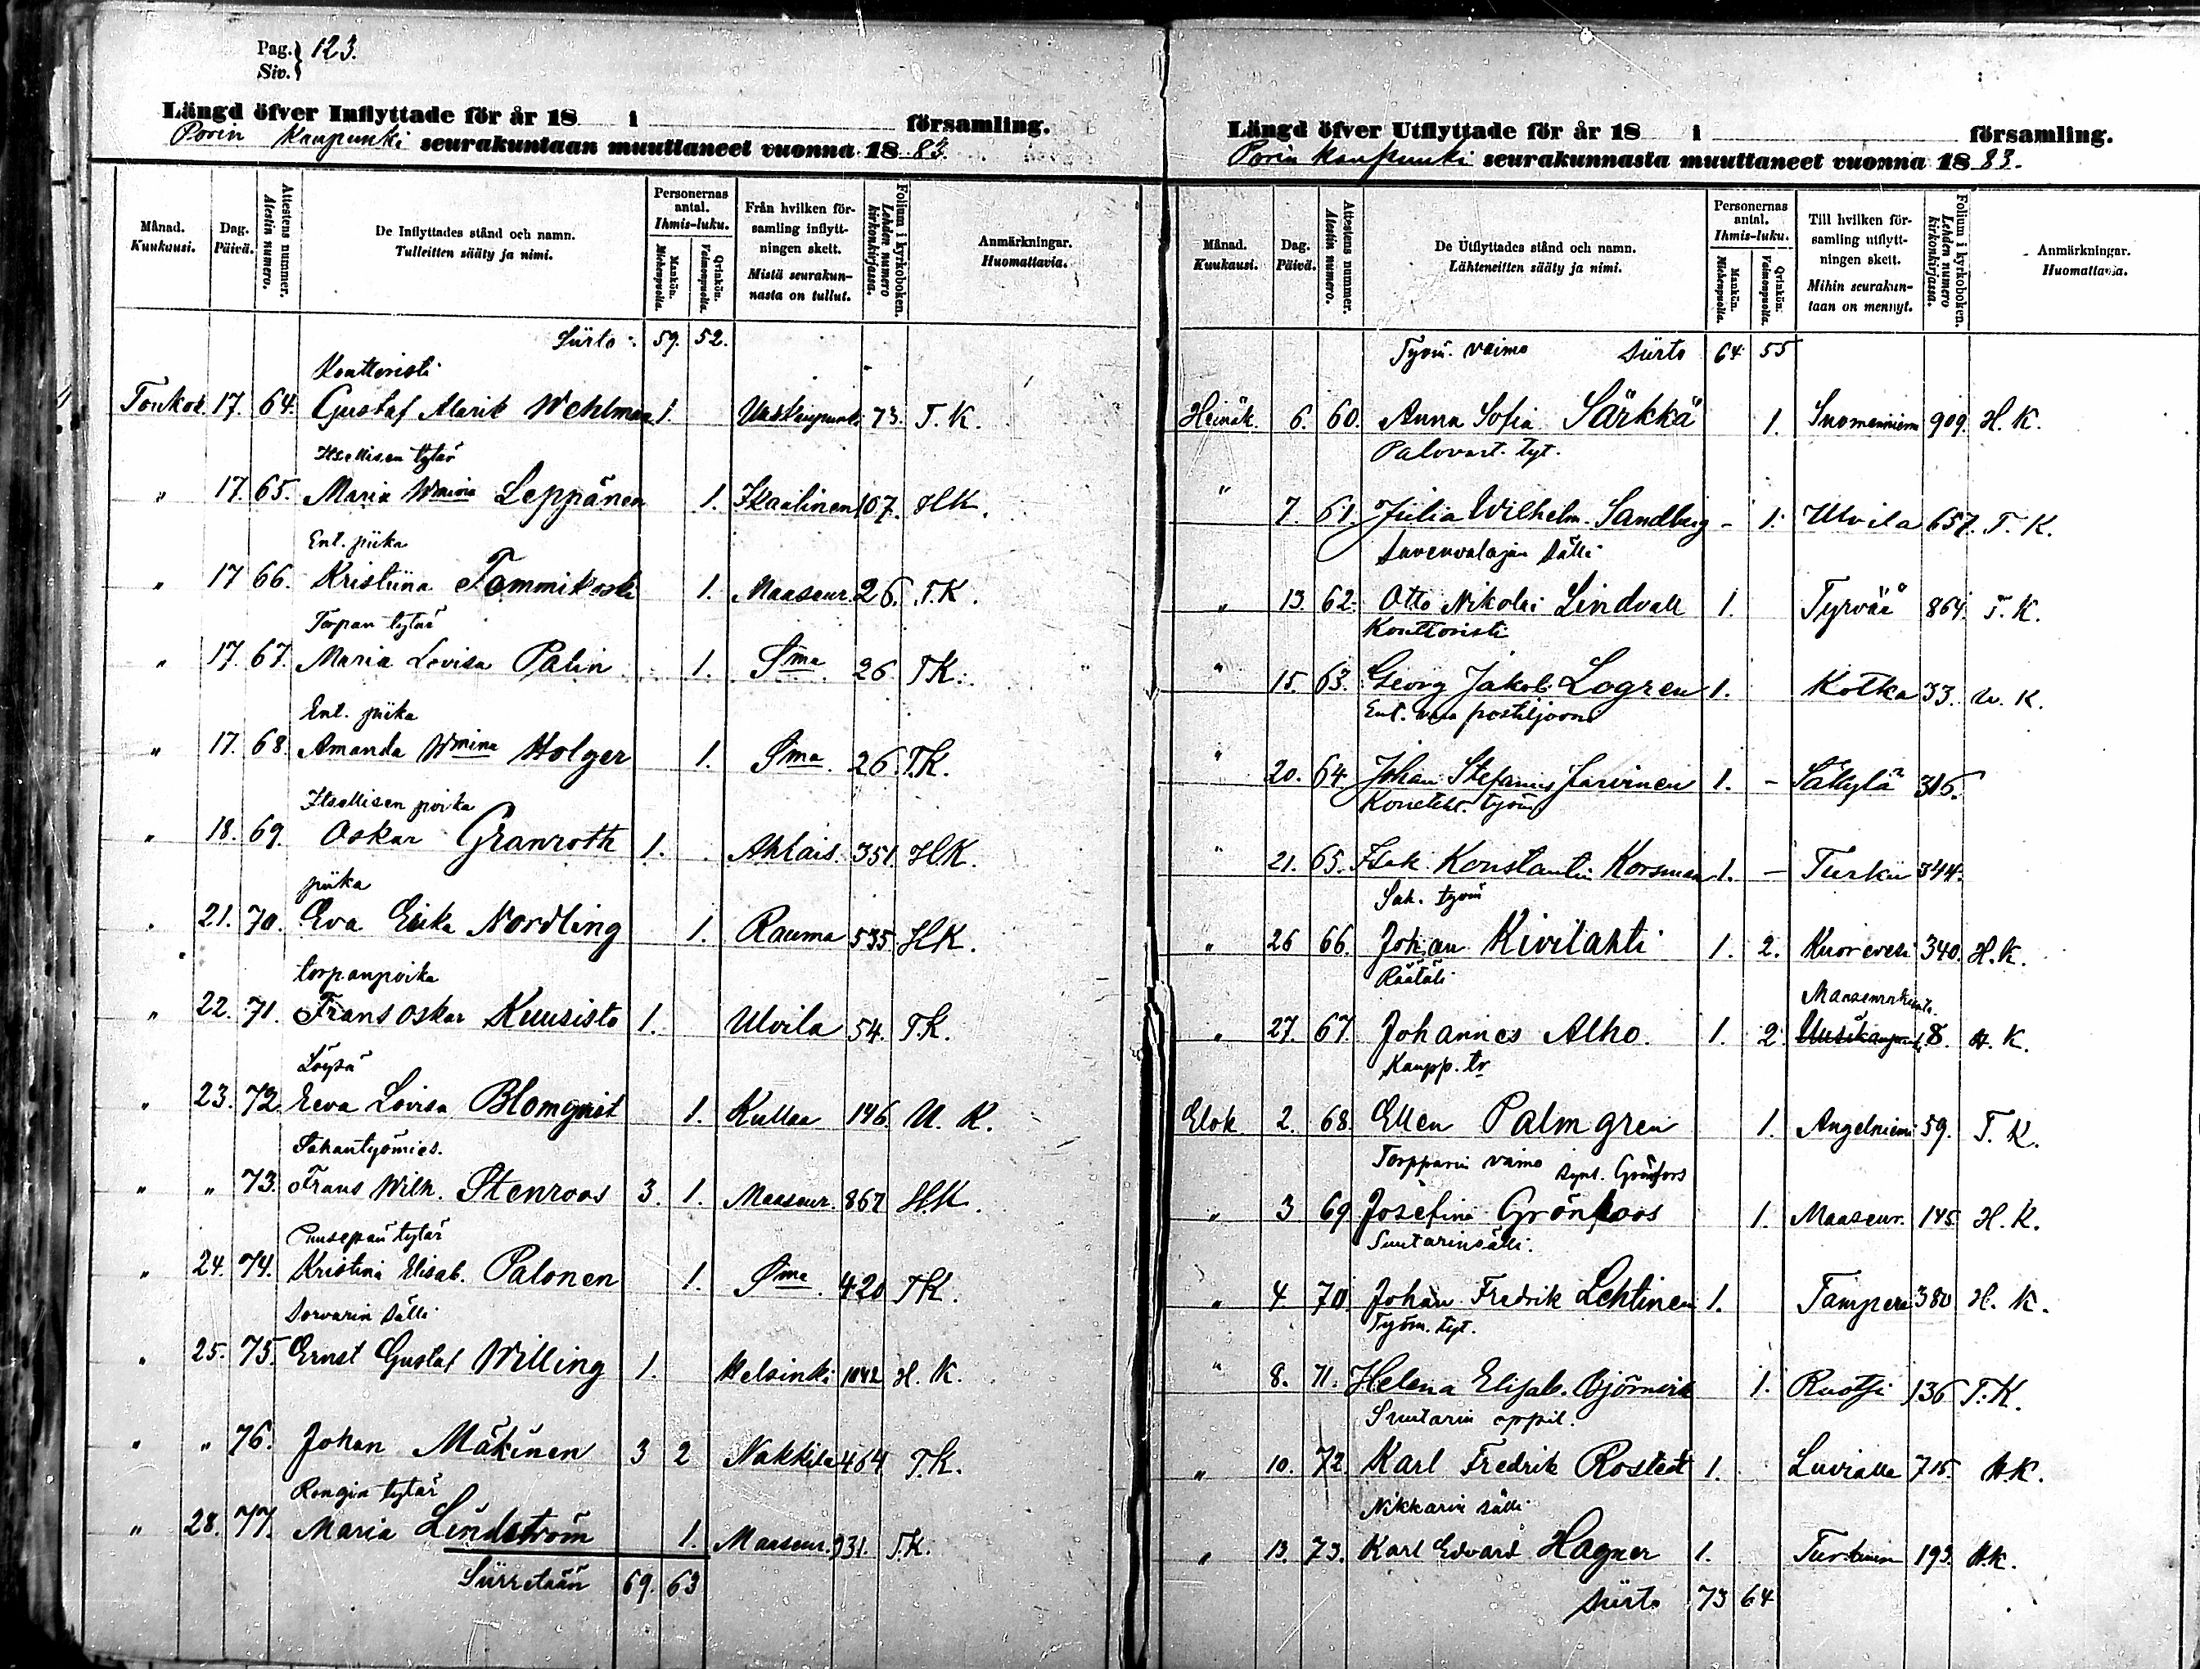 Pag. Siv. } 123.
Längd öfver Inflyttade för år 18 i församling.
Porin Kaupunki seurakuntaan muuttaneet vuonna 18 83.
Månad. Kuukausi.
Dag. Päivä.
Attestens nummer. Atestin numero.
De Inflyttades stånd och namn. Tulleitten sääty ja nimi.
Personernas antal. Ihmis-luku.
Mankön. Miehenpuolta.
Qvinkön. Vaimonpuolta.
Från hvilken församling inflyttningen skett. Mistä seurakunnasta on tullut.
Folium i kyrkoboken. Lehden numero kirkonkirjassa.
Anmärkningar. Huomattavia.
Siirto: 59. 52.
Konttoristi
Toukok. 17. 64. Gustaf Alarik Wehlman 1. 73. T. K.
Itsellisen tytär
" 17. 65. Maria Wmina Leppänen 1. Ikaalinen 107. HK.
Ent. piika
" 17 66. Kristiina Tammikoski 1. Maaseur. 26. T.K.
Torpan tytär
" 17. 67. Maria Lovisa Palin 1. Sma 26 TK.
Ent. piika
" 17. 68. Amanda Wmina Holger 1. Sma 26. T.K.
Itsellisen poika
" 18. 69. Oskar Granroth 1. Ahlais. 351. HK.
piika
" 21. 70. Eva Erika Nordling 1. Rauma 535. HK.
torpanpoika
" 22. 71. Frans Oskar Kuusisto 1. Ulvila 54. T.K.
Löysä
" 23. 72. Eeva Lovisa Blomqvist 1. Kullaa 146. U. K.
Sahantyömies.
" " 73. Frans Wilh. Stenroos 3. 1. Maaseur. 867 H.K.
Puusepän tytär
" 24. 74. Kristina Elisab. Palonen 1. Sma 420 TK.
Sorvarin sälli
" 25. 75. Ernst Gustaf Willing 1. Helsinki 1042 H. K.
" " 76. Johan Mäkinen 3 2 Nakkila 464 T.K.
Rengin tytär
" 28. 77. Maria Lindström 1. Maaseur. 931. T.K.
Siirretään 69. 63
Längd öfver Utflyttade för år 18 i församling.
Porin kaupunki seurakunnasta muuttaneet vuonna 18 83.
Månad. Kuukausi.
Dag. Päivä.
Attestens nummer. Atestin numero.
De Utflyttades stånd och namn. Lähteneitten sääty ja nimi.
Personernas antal. Ihmis-luku.
Mankön. Miehenpuolta.
Qvinkön. Vaimonpuolta.
Till hvilken församling utflyttningen skett. Mihin seurakuntaan on mennyt.
Folium i kyrkoboken. Lehden numero kirkonkirjassa.
Anmärkningar. Huomattavia.
Työm. vaimo Siirto 64 55
Heinäk. 6. 60. Anna Sofia Särkkä 1. Suomenniemi 909. H. K.
Palovart. tyt.
" 7. 61. Julia Wilhelm. Sandberg - 1. Ulvila 657. T. K.
Savenvalajan sälli
" 13. 62. Otto Nikolai Lindvall 1. Tyrvää 864. T. K.
Konttoristi
" 15. 63. Georg Jakob Logren 1. Kotka 33. U. K.
Ent. postiljooni
" 20. 64. Johan Stefanus Järvinen 1. - Säkylä 316.
Konetehd. työm
" 21. 65. Isak Konstantin Korsman 1. - Turku 344.
Sah. työm
" 26 66. Johan Kivilahti 1. 2. Kuorevesi 340. H.K.
Räätäli
Maaseurakunta
" 27. 67. Johannes Alho. 1. 2 Uusikaupunki 8. H. K.
Kaupp. tr
Elok. 2. 68. Ellen Palmgren 1. Angelniemi 59. T. K.
Torpparin vaimo synt. Grönfors
" 3 69 Josefina Grönroos 1. Maaseur. 145 H. K.
Suutarinsälli.
" 4. 70. Johan Fredrik Lehtinen 1. Tampere 380 H. K.
Työm. tyt.
" 8. 71. Helena Elisab. Björnvik 1. Ruotsi 136 T. K.
Suutarin oppil.
" 10. 72. Karl Fredrik Rostedt 1. Luvialla 715. H.K.
Nikkarin sälli
" 13. 73. Karl Edvard Hagner 1. Turkuun 193. H.K.
Siirto 73 64